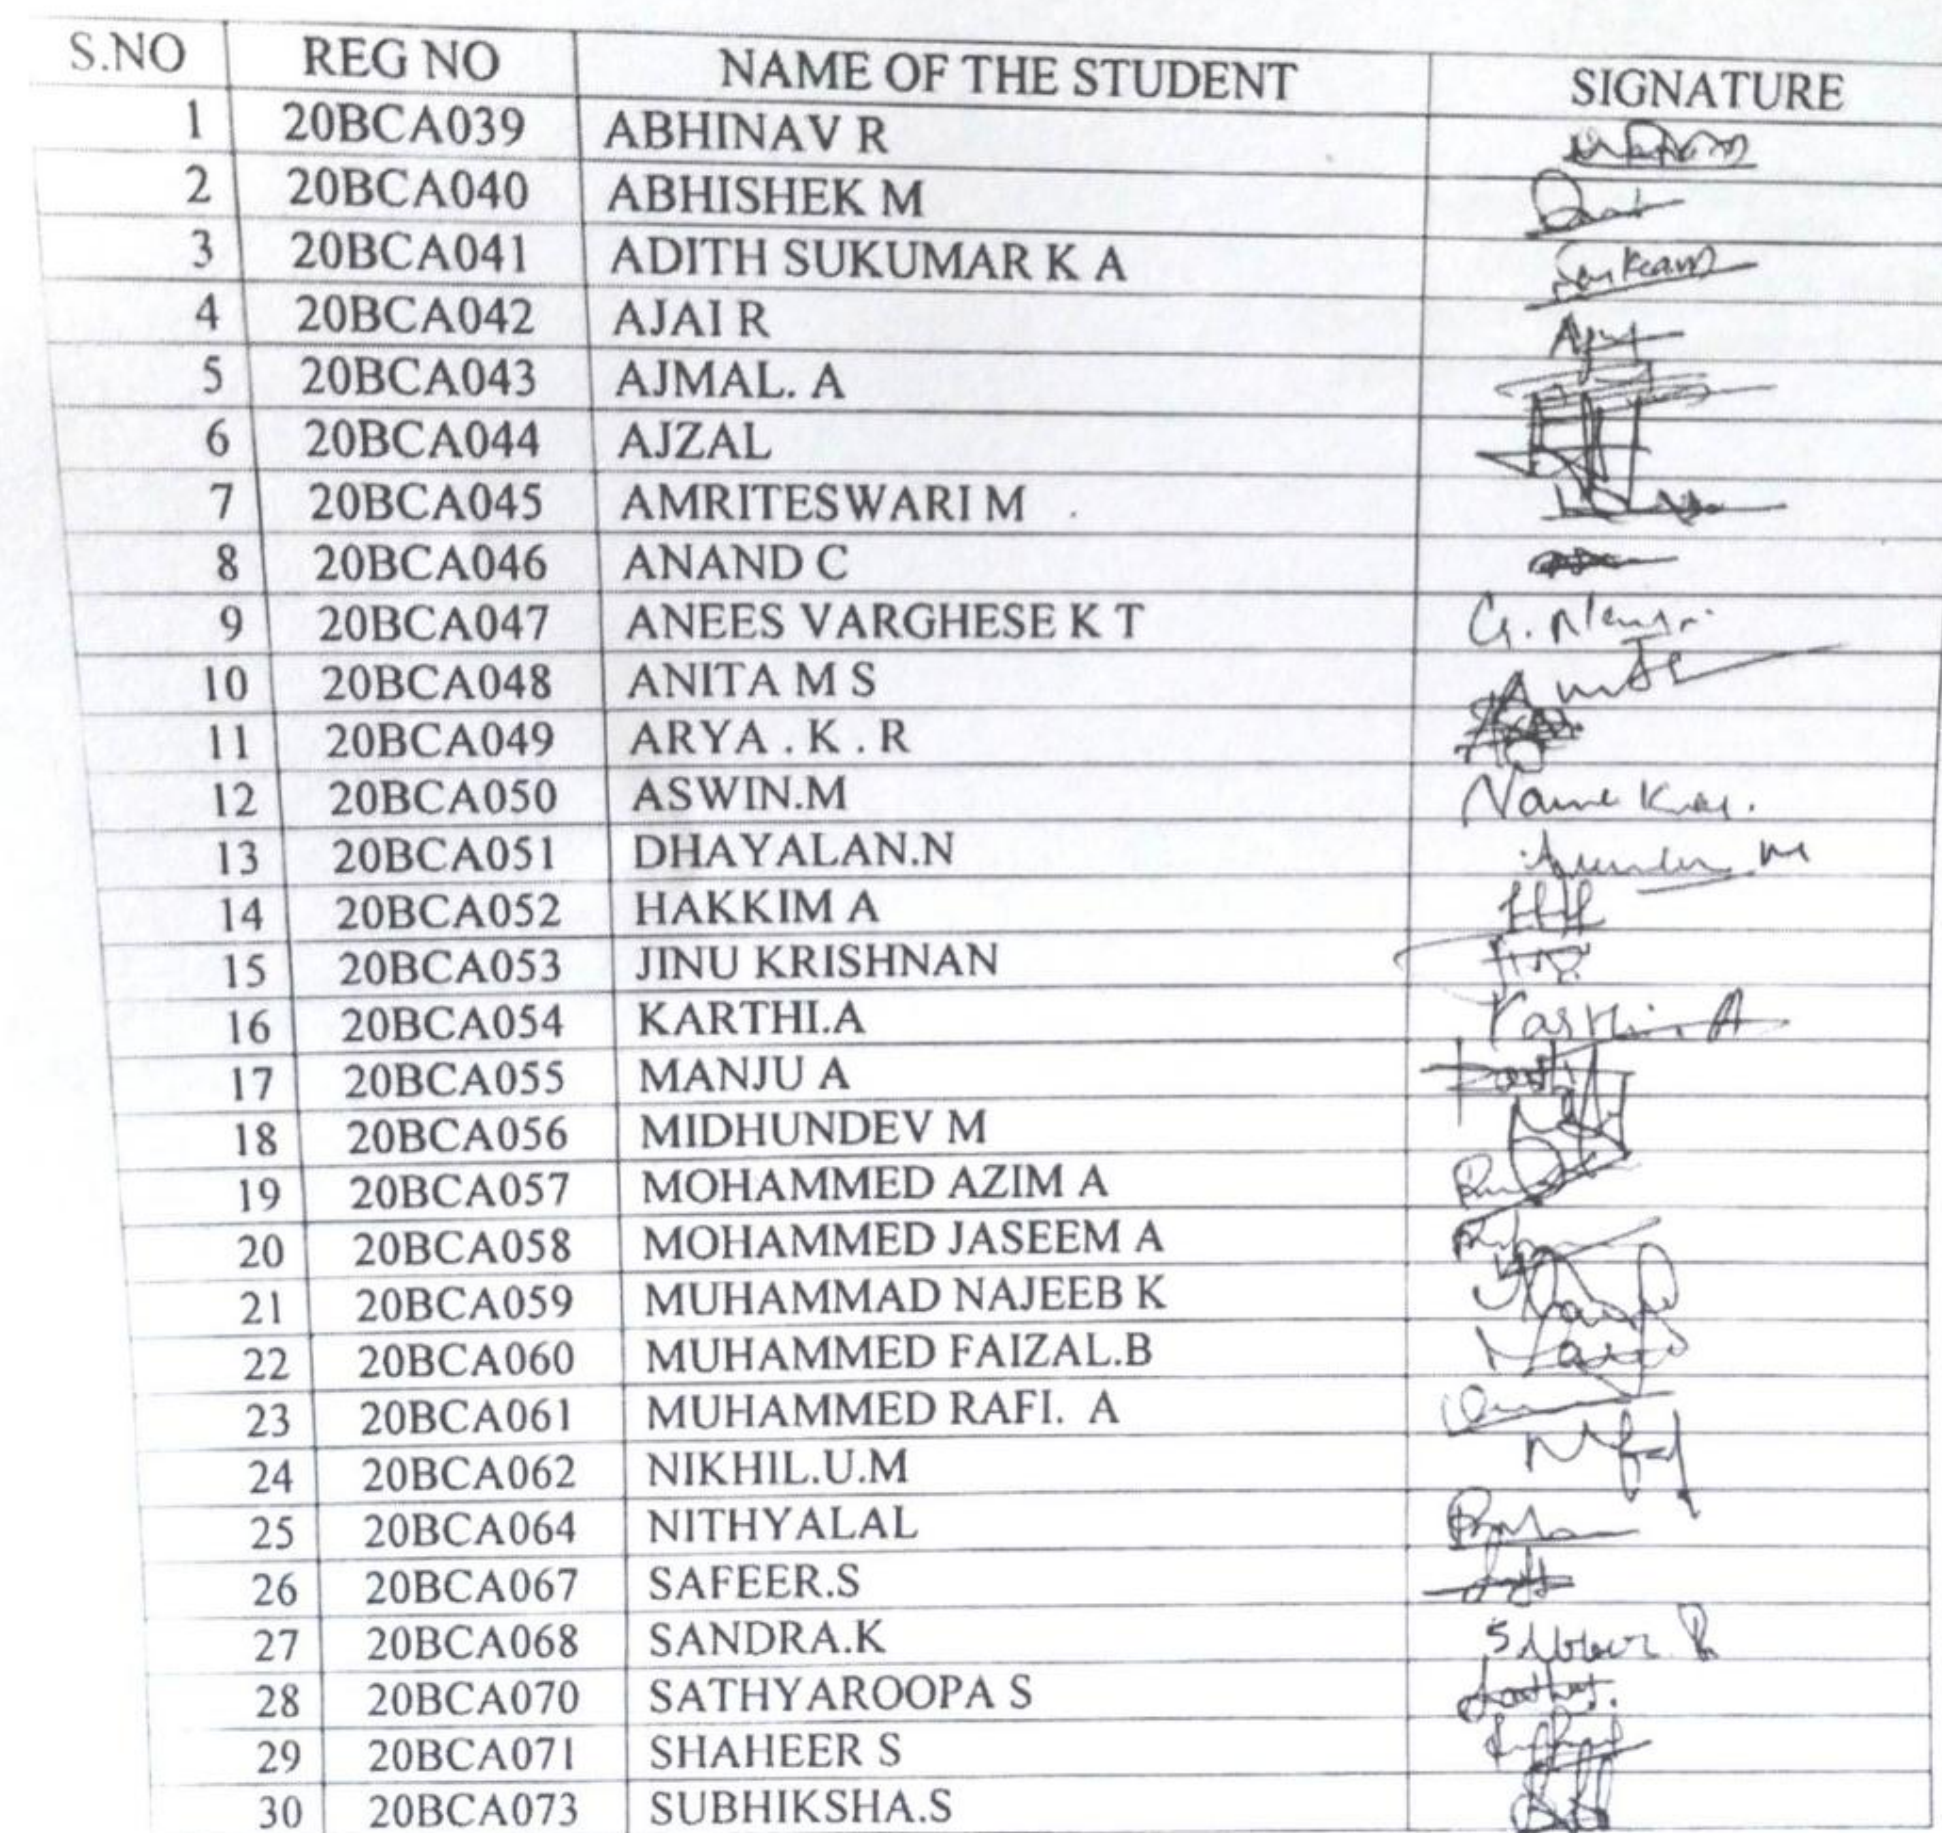 S.NO REG NO NAME OF THE STUDENT SIGNATURE
1 20BCA039 ABHINAV R
2 20BCA040 ABHISHEK M
3 20BCA041 ADITH SUKUMAR K A
4 20BCA042 AJAI R
5 20BCA043 AJMAL. A
6 20BCA044 AJZAL
7 20BCA045 AMRITESWARI M
8 20BCA046 ANAND C
9 20BCA047 ANEES VARGHESE K T
10 20BCA048 ANITA M S
11 20BCA049 ARYA . K . R
12 20BCA050 ASWIN.M
13 20BCA051 DHAYALAN.N
14 20BCA052 HAKKIM A
15 20BCA053 JINU KRISHNAN
16 20BCA054 KARTHI.A
17 20BCA055 MANJU A
18 20BCA056 MIDHUNDEV M
19 20BCA057 MOHAMMED AZIM A
20 20BCA058 MOHAMMED JASEEM A
21 20BCA059 MUHAMMAD NAJEEB K
22 20BCA060 MUHAMMED FAIZAL.B
23 20BCA061 MUHAMMED RAFI. A
24 20BCA062 NIKHIL.U.M
25 20BCA064 NITHYALAL
26 20BCA067 SAFEER.S
27 20BCA068 SANDRA.K
28 20BCA070 SATHYAROOPA S
29 20BCA071 SHAHEER S
30 20BCA073 SUBHIKSHA.S